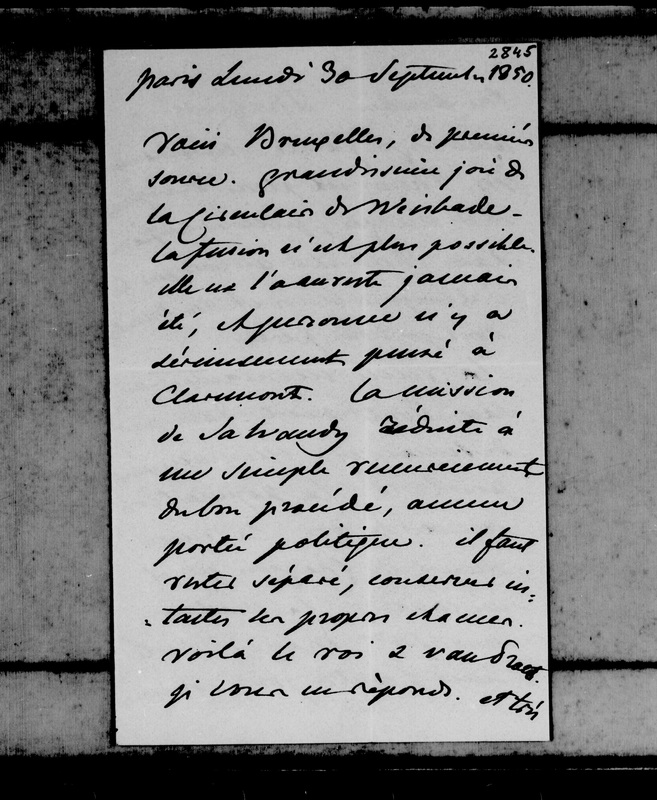 2845
Paris Lundi 30 Septembre 1850.
Voici Bruxelles, de première
source. Grandissime joie de
la Circulaire de Wiesbade -
la fusion n'est plus possible
elle ne l'a au reste jamais
été, et personne n'y a
sérieusement pensé à
Claremont. La mission
de Salvandy réduite à
un simple remerciement
du bon procédé, aucune
portée politique. il faut
rester séparé, conserver in-
-tactes ses propres chances.
voilà le roi & van Praet.
je vous en réponds. et très